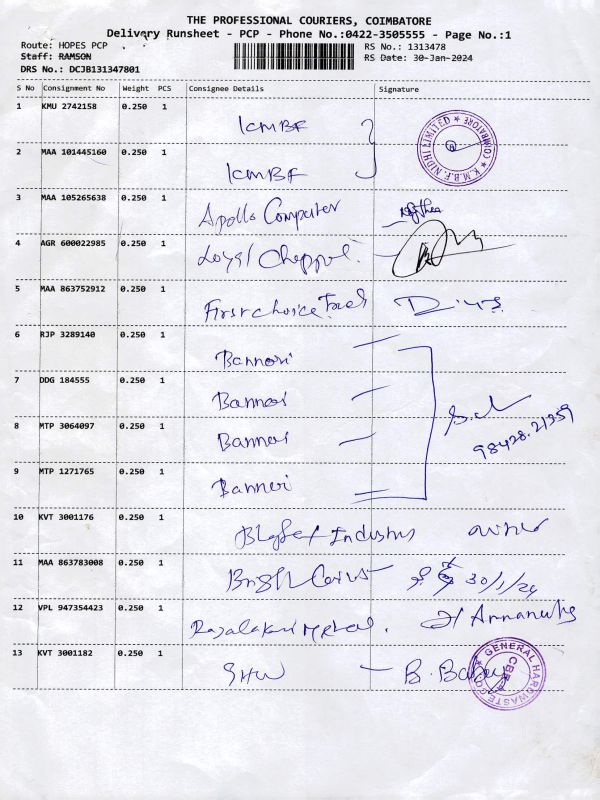 THE PROFESSIONAL COURIERS, COIMBATORE
Delivery Runsheet - PCP - Phone No.:0422-3505555 - Page No.:1
Route: HOPES PCP
RS No.: 1313478
Staff: RAMSON
RS Date: 30-Jan-2024
DRS No.: DCJB131347801
S No Consignment No Weight PCS Consignee Details Signature
1 KMU 2742158 0.250 1 KMBF
2 MAA 101445160 0.250 1 KMBF
3 MAA 105265638 0.250 1 Apollo Computer
4 AGR 600022985 0.250 1 Loyal
5 MAA 863752912 0.250 1 First choice
6 RJP 3289140 0.250 1 Bannari
7 DDG 184555 0.250 1 Bannari
8 MTP 3064097 0.250 1 Bannari
98428.21359
9 MTP 1271765 0.250 1 Bannari
10 KVT 3001176 0.250 1
11 MAA 863783008 0.250 1 30/1/24
12 VPL 947354423 0.250 1
13 KVT 3001182 0.250 1 GHW B. Babu
K.M.B.F. NIDHI LIMITED
GENERAL HARDWASTE CO
CBE